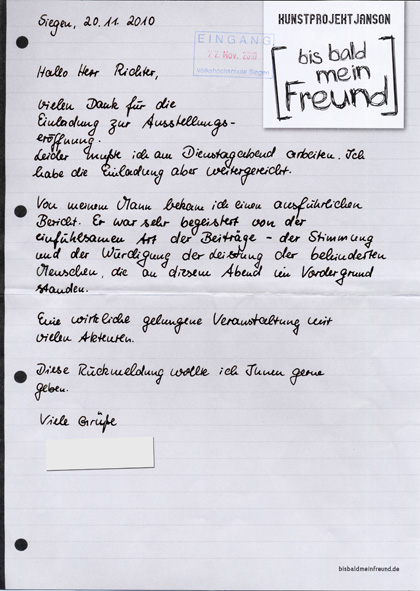 Siegen, 20.11.2010
EINGANG
22. Nov. 2010
Volkshochschule Siegen
KUNSTPROJEKTJANSON
[bis bald
mein
Freund]
Hallo Herr Richter,
vielen Dank für die
Einladung zur Ausstellungs-
eröffnung.
Leider mußte ich am Dienstagabend arbeiten. Ich
habe die Einladung aber weitergereicht.
Von meinem Mann bekam ich einen ausführlichen
Bericht. Er war sehr begeistert von der
einfühlsamen Art der Beiträge - der Stimmung
und der Würdigung der Leistung der behinderten
Menschen, die an diesem Abend im Vordergrund
standen.
Eine wirkliche gelungene Veranstaltung mit
vielen Akteuren.
Diese Rückmeldung wollte ich Ihnen gerne
geben.
Viele Grüße
bisbaldmeinfreund.de